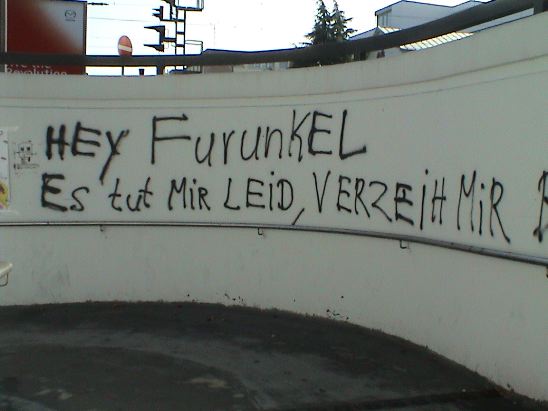 HEY FURUNKEL
Es tut MiR LEiD, VERZEiH MiR